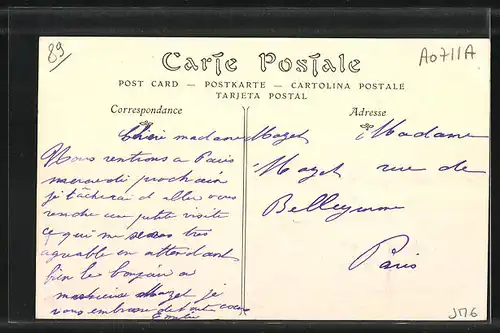 89
A0711A
Carte Postale
POST CARD — POSTKARTE — CARTOLINA POSTALE
TARJETA POSTAL
Correspondance
Chère madame Mazet
Nous rentrons a Paris
mercredi prochain
je tâcherai d aller vous
rendre une petite visite
ce qui me seras très
agréable en attendant
bien le bonjour a
monsieur Mazet je
vous embrasse de tout coeur
Adresse
Madame
Mazet rue de
Belleyme
Paris
JM6